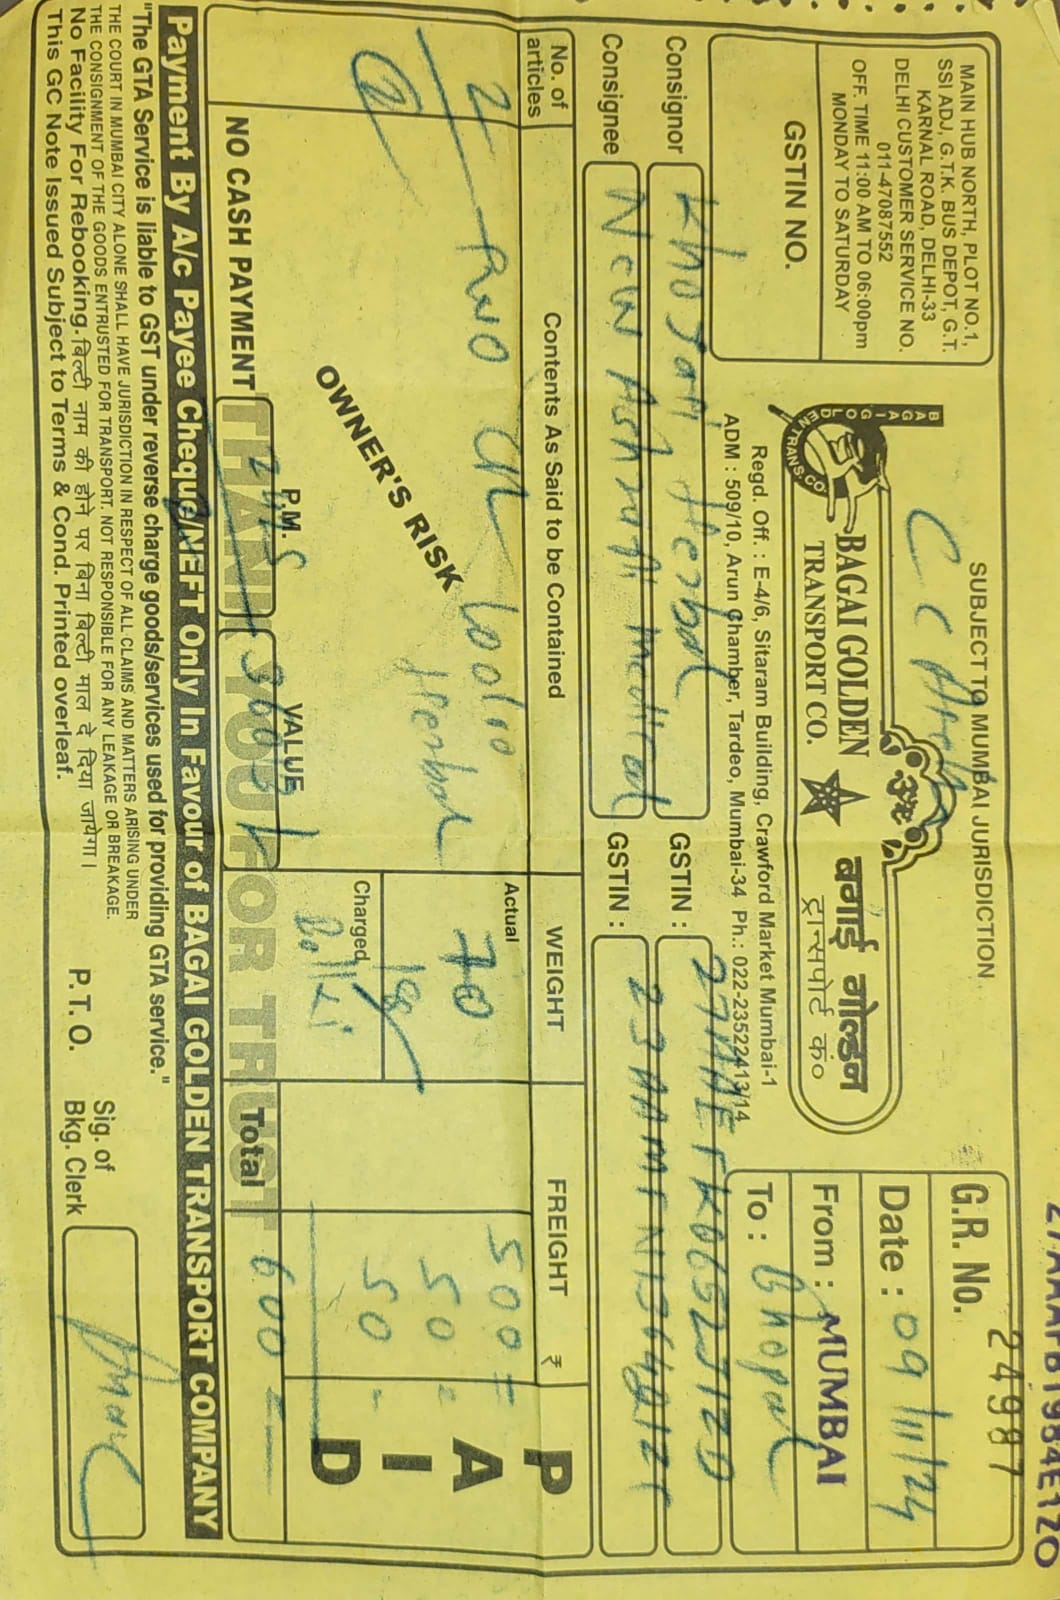 27AAAFB1984E1ZO
SUBJECT TO MUMBAI JURISDICTION
MAIN HUB NORTH, PLOT NO.1,
SSI ADJ, G.T.K. BUS DEPOT, G.T.
KARNAL ROAD, DELHI-33
DELHI CUSTOMER SERVICE NO.
011-47087552
OFF. TIME 11:00 AM TO 06:00pm
MONDAY TO SATURDAY
GSTIN NO.
C C
BAGAI GOLDEN TRANS. CO
BAGAI GOLDEN
TRANSPORT CO.
ॐ
बगाई गोल्डन
ट्रान्सपोर्ट कं०
Regd. Off. : E-4/6, Sitaram Building, Crawford Market Mumbai-1
ADM : 509/10, Arun Chamber, Tardeo, Mumbai-34 Ph.: 022-23522413/14
G.R. No. 24987
Date : 09/11/24
From : MUMBAI
To : Bhopal
Consignor Khojati Herbal GSTIN : 27AAEFK0652J1ZD
Consignee New Medical GSTIN :
No. of articles Contents As Said to be Contained WEIGHT FREIGHT ₹
2 Actual 70 500 =
Herbal 50 =
2 Charged 50 -
OWNER'S RISK
PAID
NO CASH PAYMENT P.M. VALUE Total 600 =
THANK YOU FOR TRUST
Payment By A/c Payee Cheque/NEFT Only In Favour of BAGAI GOLDEN TRANSPORT COMPANY
"The GTA Service is liable to GST under reverse charge goods/services used for providing GTA service."
THE COURT IN MUMBAI CITY ALONE SHALL HAVE JURISDICTION IN RESPECT OF ALL CLAIMS AND MATTERS ARISING UNDER
THE CONSIGNMENT OF THE GOODS ENTRUSTED FOR TRANSPORT. NOT RESPONSIBLE FOR ANY LEAKAGE OR BREAKAGE.
No Facility For Rebooking. बिल्टी नाम की होने पर बिना बिल्टी माल दे दिया जायेगा।
This GC Note Issued Subject to Terms & Cond. Printed overleaf.
P. T. O.
Sig. of
Bkg. Clerk